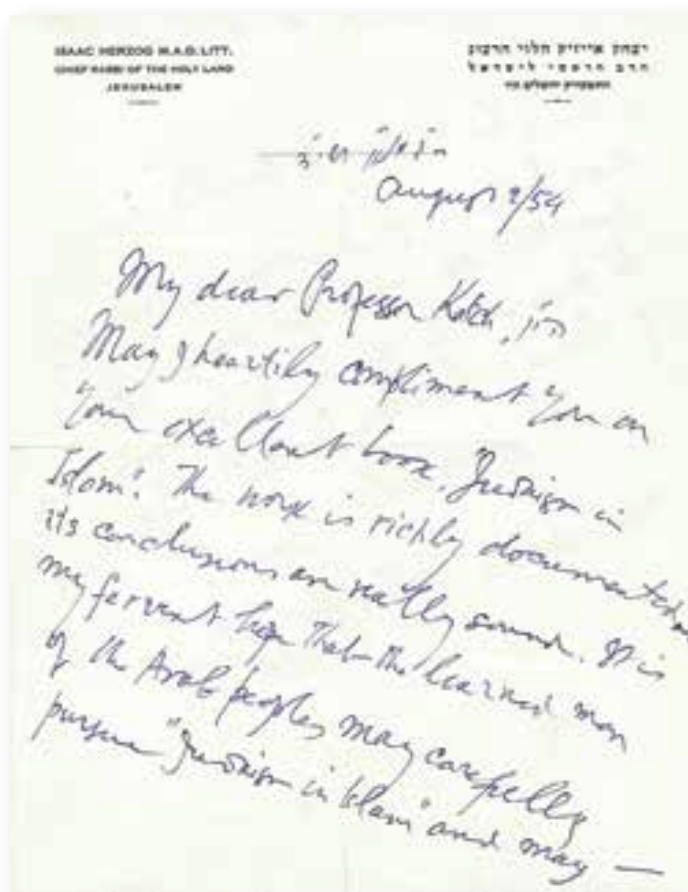 ISAAC HERZOG M.A.D. LITT.
CHIEF RABBI OF THE HOLY LAND
JERUSALEM
יצחק אייזיק הלוי הרצוג
הרב הראשי לישראל
August 2/54
My dear Professor
May I heartily compliment you on
your excellent book, "Judaism in
Islam". The work is richly documented
its conclusions are really sound. It is
my fervent hope that the learned men
of the Arab peoples may carefully
pursue "Judaism in Islam" and may —